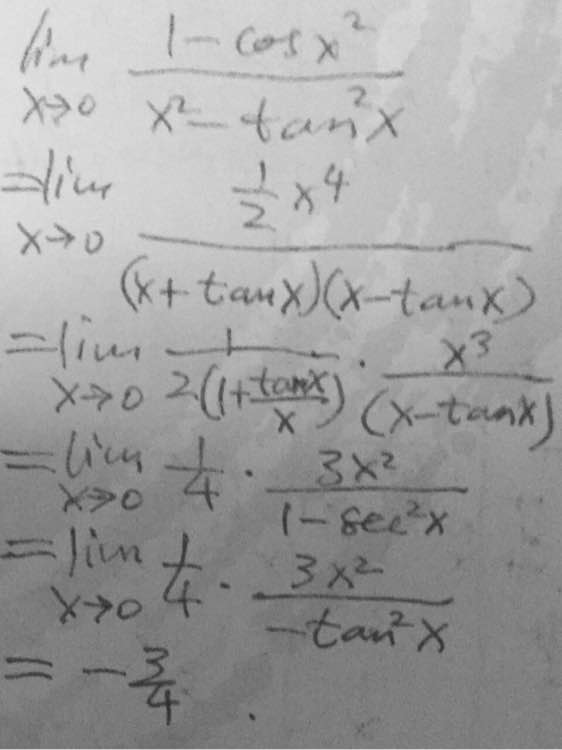 lim x→0 (1 - cos x²)/(x² - tan²x)
= lim x→0 (1/2 x⁴)/((x + tan x)(x - tan x))
= lim x→0 1/(2·(1 + tan x/x)) · x³/(x - tan x)
= lim x→0 1/4 · 3x²/(1 - sec²x)
= lim x→0 1/4 · 3x²/(-tan²x)
= -3/4.